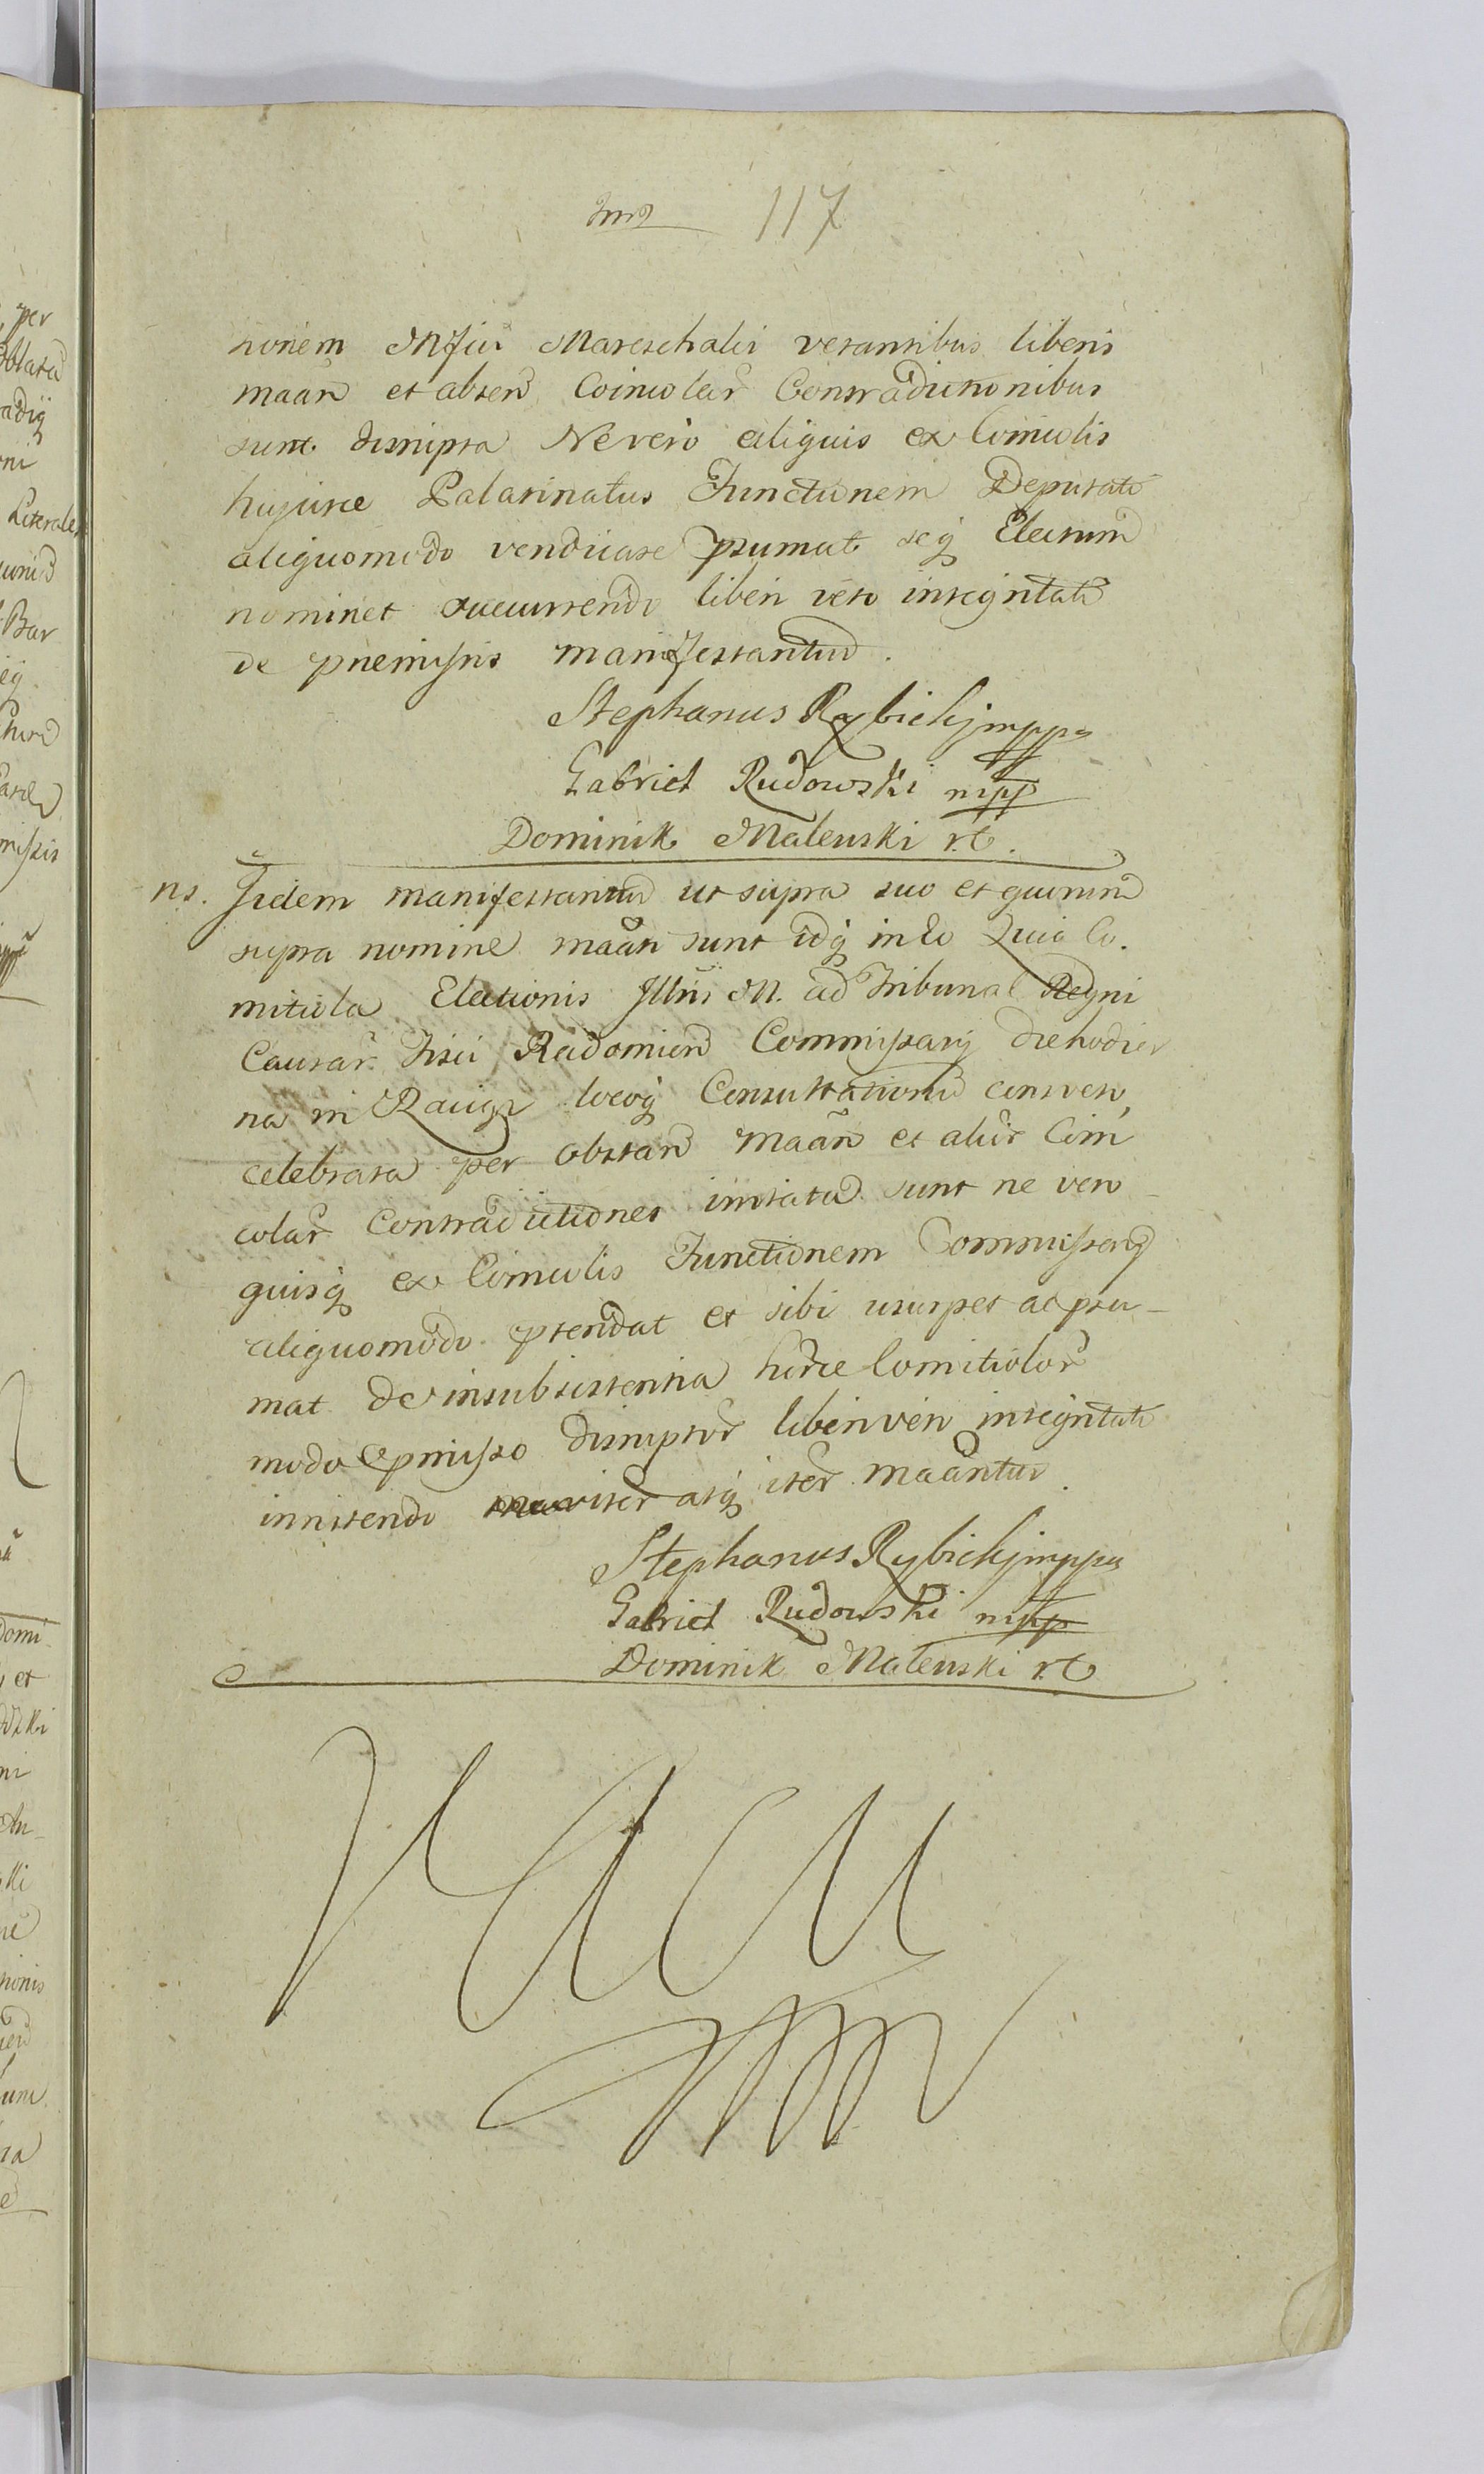 117
tionem Mfici Mareschalci vetantibus liberis
maañ et absen Coincolar Contradictionibus
sunt disrupta Ne vero aliquis ex Coincolis
hujusce Palatinatus Functionem Deputati
aliquomodo vendicare psumat seq Electum
nominet succurrendo liberi veto integritati
de premissis manifestantur.
Stephanus Rybickj mppa
Gabriel Rudowski mpp
Dominik Maleuski r.C.
ns. Jidem manifestantur ut supra suo et quorum
supra nomine maañ sunt idq in Eo Quia Co.
mitiola Electionis Jllris M. ad Tribunal Regni
Causar Fisci Radomien Commissarij die hodier
na in Ravige locoq Consultationu consveto,
celebrata per obstan maañ et alior Coin
colar Contradictiones irritata sunt ne vero
quisq ex Coincolis Functionem Commissarij
aliquomodo ptendat et sibi usurpet ac psu-
mat De insubsistentia hŭrce Comitiolor
modo pmisso disruptor liberi veri integritati
innitendo iter atq iter maañtur.
Stephanus Rybickj mppa
Gabriel Rudowski mpp
Dominik Maleuski r.C
per
oblata
adiq
oni
Literales
Bar
missis
domi
et
ni
An
ski
tionis